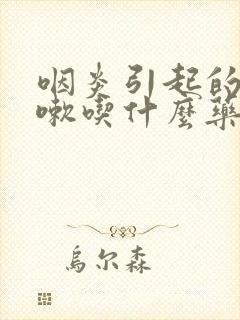 咽炎引起的
嗽喫什麼藥
烏尔森